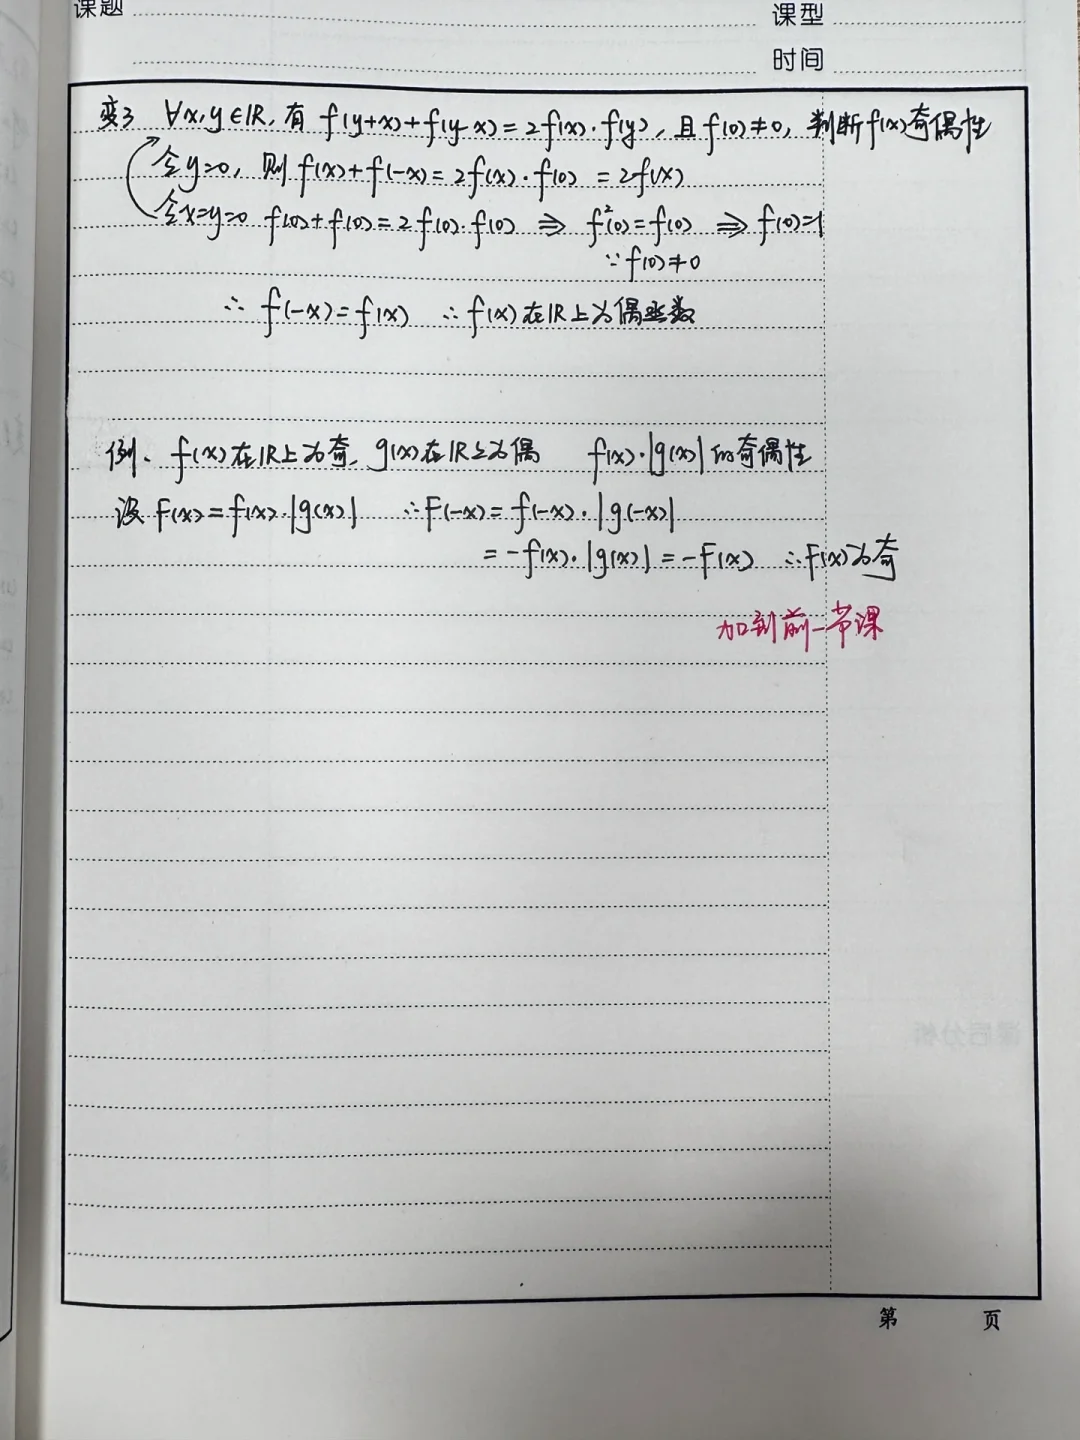 课题
课型
时间
变3 ∀x,y∈R,有 f(y+x)+f(y-x)=2f(x)·f(y),且f(0)≠0,判断f(x)奇偶性
令y=0,则f(x)+f(-x)=2f(x)·f(0)=2f(x)
令x=y=0 f(0)+f(0)=2f(0)·f(0) ⇒ f²(0)=f(0) ⇒ f(0)=1
∵f(0)≠0
∴f(-x)=f(x) ∴f(x)在R上为偶函数
例、f(x)在R上为奇,g(x)在R上为偶 f(x)·|g(x)|的奇偶性
设F(x)=f(x)·|g(x)| ∴F(-x)=f(-x)·|g(-x)|
=-f(x)·|g(x)|=-F(x) ∴F(x)为奇
加到前一节课
课后分析
第 页